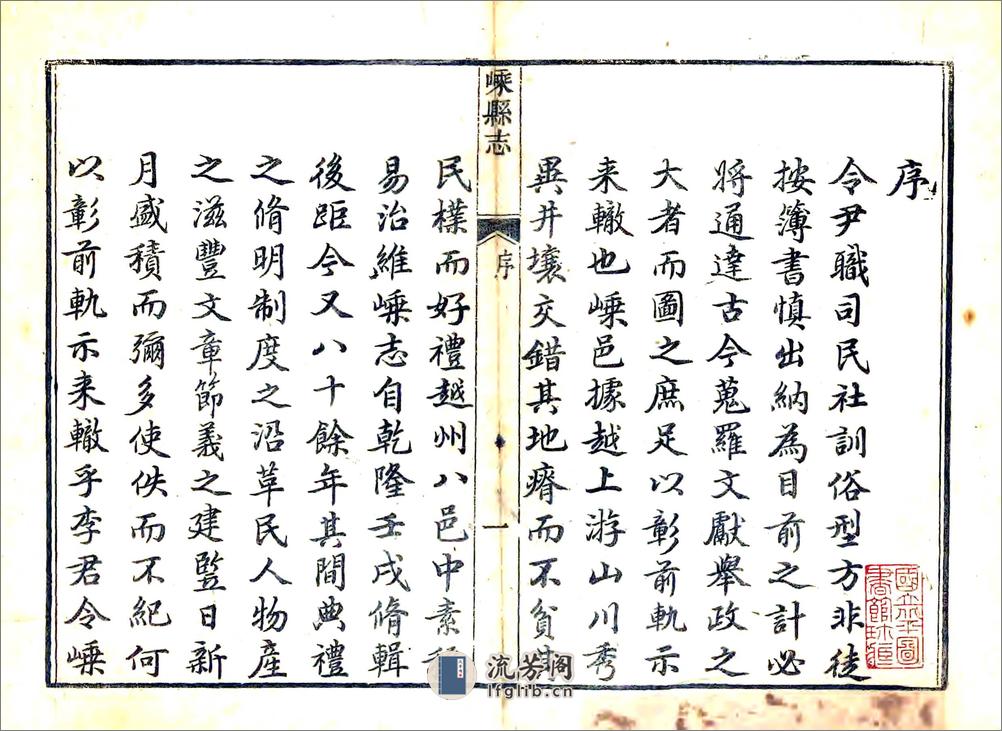 序
令尹職司民社訓俗型方非徒
按簿書慎出納為目前之計必
將通達古今蒐羅文獻舉政之
大者而圖之庶足以彰前軌示
来轍也嵊邑據越上游山川秀
異井壤交錯其地瘠而不貧其
嵊縣志
序
一
民樸而好禮越州八邑中素稱
易治維嵊志自乾隆壬戌脩輯
後距今又八十餘年其間典禮
之脩明制度之沿革民人物產
之滋豐文章節義之建豎日新
月盛積而彌多使佚而不紀何
以彰前軌示来轍乎李君令嵊
國立北平圖
書館珍藏
流芳阁
lfglib.cn